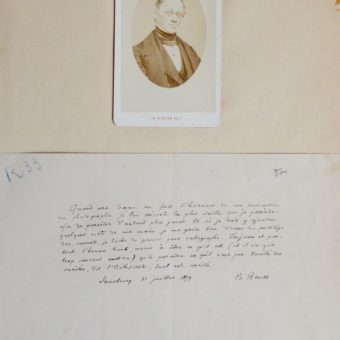 R33
Quand une dame me fait l'honneur de me demander
ma photographie je lui désire la plus vieille où je paraisse
afin de paraître d'autant plus jeune. Et si je dois y ajouter
quelques mots de ma main, je me garde bien d'user du privilège
des savants, je tâche de passer pour calligraphe. Toujours et par-
tout l'homme tient moins à être ce qu'il est (et il n'a que
trop souvent raison) qu'à paraître ce qu'il n'est pas. Vanité des
vanités, dit l'Ecclésiaste, tout est vanité.
Strasbourg juillet 1879 E. Reuss